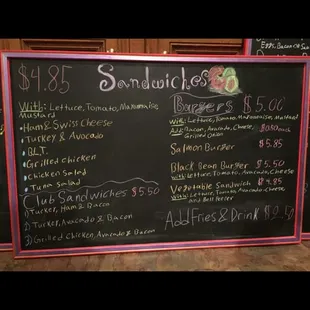 $4.85 Sandwiches
With: Lettuce, Tomato, Mayonnaise,
Mustard
Ham & Swiss Cheese
Turkey & Avocado
B.L.T.
Grilled Chicken
Chicken Salad
Tuna Salad
Club Sandwiches $5.50
1) Turkey, Ham & Bacon
2) Turkey, Avocado & Bacon
3) Grilled Chicken, Avocado & Bacon
Burgers $5.00
With: Lettuce, Tomato, Mayonnaise, Mustard
Add: Bacon, Avocado, Cheese,
Grilled Onion
Salmon Burger $5.85
Black Bean Burger $5.50
With: Lettuce, Tomato, Avocado, Cheese
Vegetable Sandwich $4.85
With: Lettuce, Tomato, Avocado, Cheese
and Bell Pepper
Add Fries & Drink $2.50